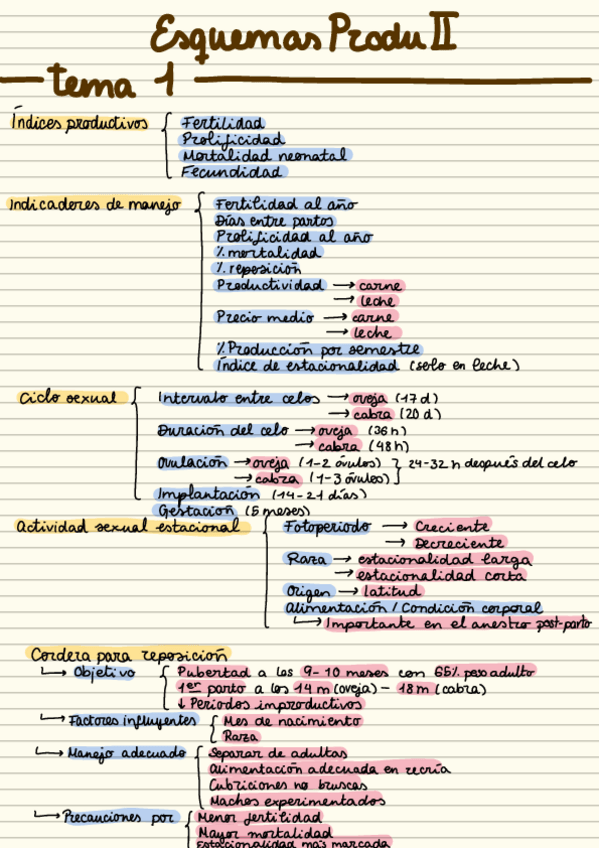 Esquemas Produ II
tema 1
Índices productivos { Fertilidad
Prolificidad
Mortalidad neonatal
Fecundidad
Indicadores de manejo { Fertilidad al año
Días entre partos
Prolificidad al año
% mortalidad
% reposición
Productividad → carne
→ leche
Precio medio → carne
→ leche
% Producción por semestre
Índice de estacionalidad (solo en leche)
Ciclo sexual { Intervalo entre celos → oveja (17 d)
→ cabra (20 d)
Duración del celo → oveja (36 h)
→ cabra (48 h)
Ovulación → oveja (1-2 óvulos) } 24-32 h después del celo
→ cabra (1-3 óvulos)
Implantación (14-21 días)
Gestación (5 meses)
Actividad sexual estacional { Fotoperiodo → Creciente
→ Decreciente
Raza → estacionalidad larga
→ estacionalidad corta
Origen → latitud
Alimentación / Condición corporal
↳ Importante en el anestro post-parto
Cordera para reposición
↳ Objetivo { Pubertad a los 9-10 meses con 65% peso adulto
1er parto a los 14 m (oveja) - 18 m (cabra)
↓ Periodos improductivos
↳ Factores influyentes { Mes de nacimiento
Raza
↳ Manejo adecuado { Separar de adultas
Alimentación adecuada en recría
Cubriciones no bruscas
Machos experimentados
↳ Precauciones por { Menor fertilidad
Mayor mortalidad
Estacionalidad más marcada